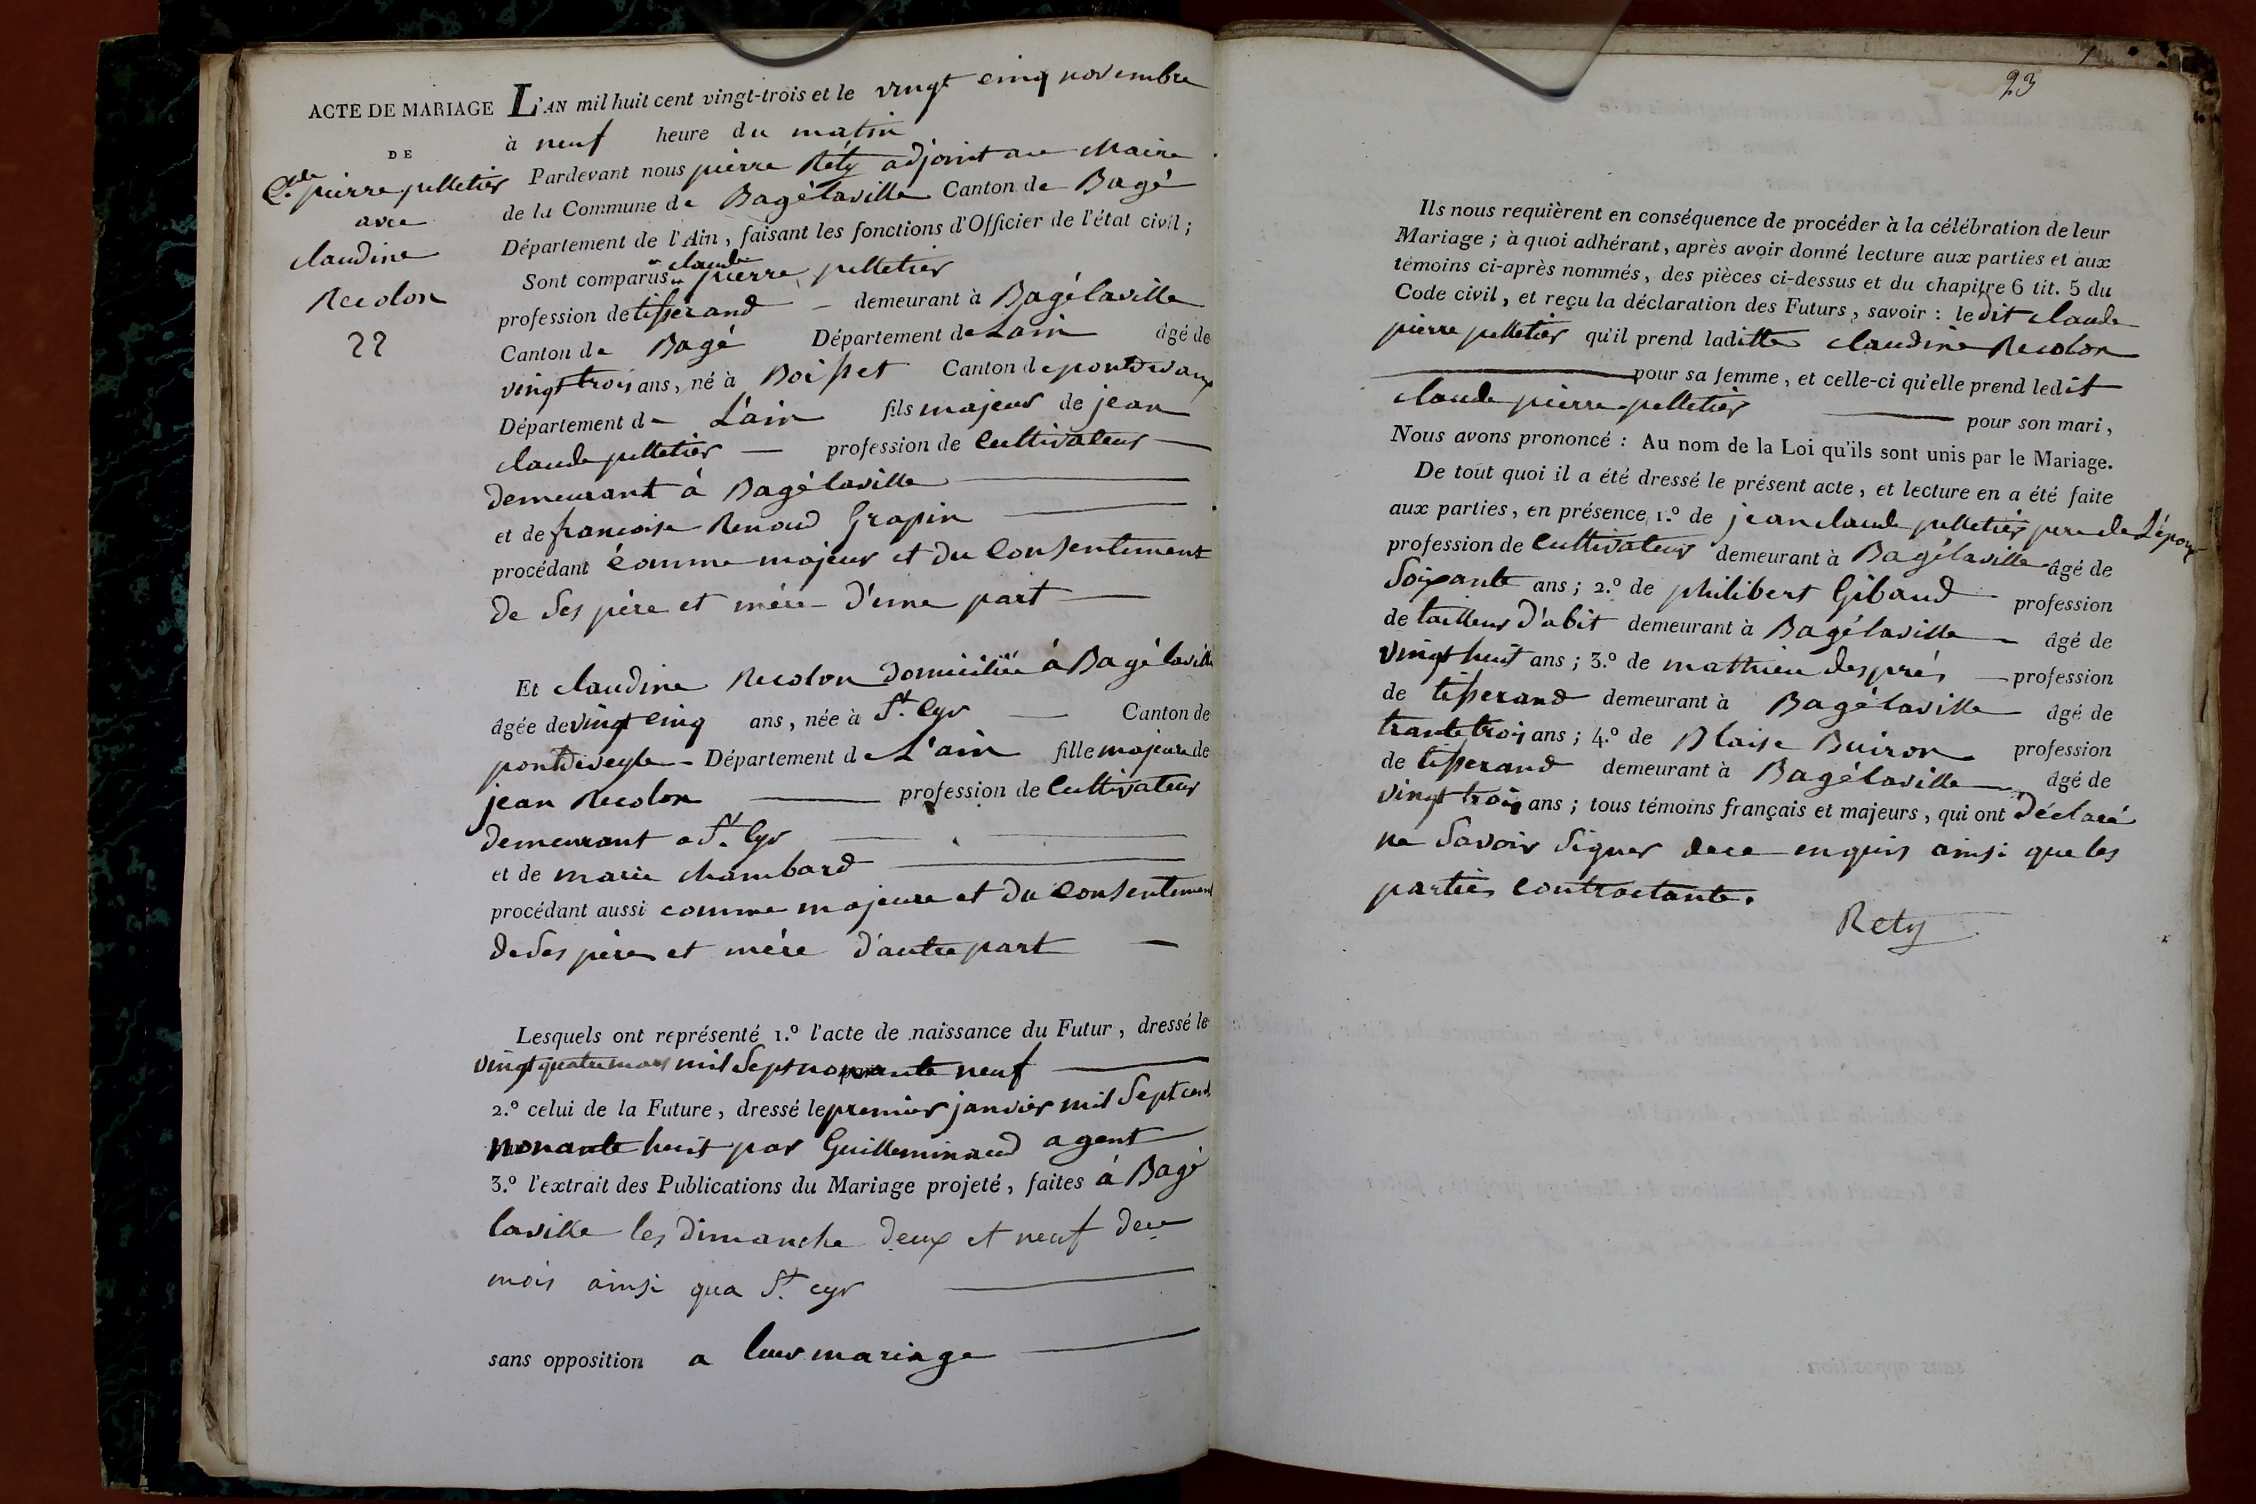 ACTE DE MARIAGE
DE
C.de pierre pelletier
avec
claudine
Recolon
22
L'AN mil huit cent vingt-trois et le vingt cinq novembre
à neuf heure du matin
Pardevant nous pierre Réty adjoint au Maire
de la Commune de Bagélaville Canton de Bagé
Département de l'Ain, faisant les fonctions d'Officier de l'état civil;
Sont comparus claude pierre pelletier
profession de tisserand demeurant à Bagélaville
Canton de Bagé Département de Lain âgé de
vingt trois ans, né à Boisset Canton de pontdevaux
Département de L'ain fils majeur de jean
claude pelletier — profession de Cultivateur —
demeurant á Bagélaville
et de francoise Renoud Grapin
procédant comme majeur et du Consentement
de Ses père et mére d'une part
Et claudine Recolon domiciliée á Bagélaville
âgée de vingt cinq ans, née à St. Cyr — Canton de
pontdeveyle - Département de L'ain fille majeure de
jean Recolon — profession de Cultivateur
demeurant a St. Cyr
et de marie chambard
procédant aussi comme majeure et du Consentement
de Ses père et mére d'autre part —
Lesquels ont représenté 1.º l'acte de naissance du Futur, dressé le
vingt quatre mars mil Sept nonante neuf
2.º celui de la Future, dressé le premier janvier mil Sept cent
nonante huit par Guilleminaud agent
3.º l'extrait des Publications du Mariage projeté, faites á Bagé
laville les dimanche deux et neuf dece
mois ainsi qua St. cyr
sans opposition a leur mariage
93
Ils nous requièrent en conséquence de procéder à la célébration de leur
Mariage; à quoi adhérant, après avoir donné lecture aux parties et aux
témoins ci-après nommés, des pièces ci-dessus et du chapitre 6 tit. 5 du
Code civil, et reçu la déclaration des Futurs, savoir : le dit claude
pierre pelletier qu'il prend laditte claudine Recolon
pour sa femme, et celle-ci qu'elle prend ledit
claude pierre pelletier — pour son mari,
Nous avons prononcé : Au nom de la Loi qu'ils sont unis par le Mariage.
De tout quoi il a été dressé le présent acte, et lecture en a été faite
aux parties, en présence, 1.º de jean claude pelletier pere de L'époux
profession de Cultivateur demeurant à Bagélaville âgé de
Soixante ans; 2.º de philibert Gibaud profession
de tailleur d'abit demeurant à Bagélaville — âgé de
vingt huit ans; 3.º de mathieu després — profession
de tisserand demeurant à Bagélaville âgé de
trante trois ans; 4.º de Blaise Buiron profession
de tisserand demeurant à Bagélaville — âgé de
vingt trois ans; tous témoins français et majeurs, qui ont déclaré
ne Savoir Signer dece enquis ainsi que les
parties Contractante.
Rety